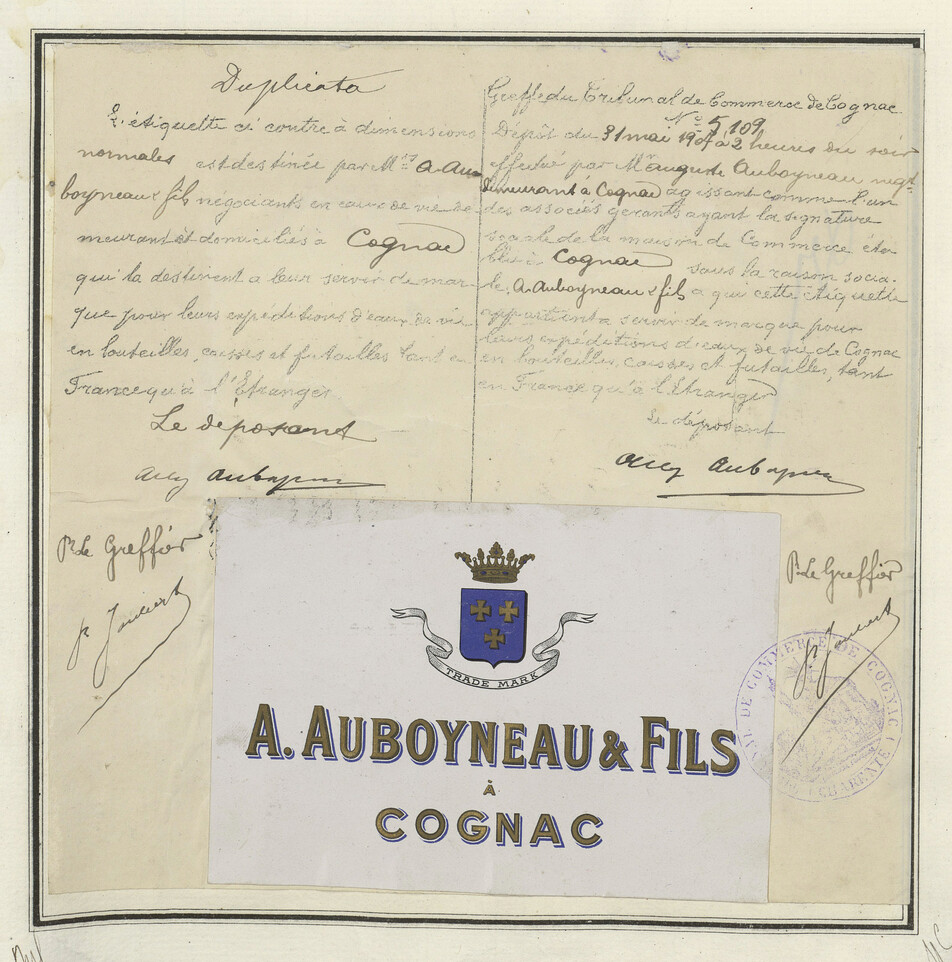 Duplicata
L'étiquette ci contre à dimensions
normales est destinée par Mrs A. Au-
boyneau & fils négociants en eaux de vie de-
meurant et domiciliés à Cognac
qui la destinent a leur servir de mar-
que pour leurs expéditions d'eaux de vie
en bouteilles, caisses et futailles tant en
France qu'à l'Etranger
Le déposant
Aug Auboyneau
Pr Le Greffier
Greffe du Tribunal de Commerce de Cognac
No 5,109
Dépôt du 31 mai 1907 à 2 heures du soir
effectué par Mr Auguste Auboyneau négt
demeurant à Cognac agissant comme l'un
des associés gérants ayant la signature
sociale de la maison de Commerce éta-
blie à Cognac sous la raison socia-
le, A. Auboyneau & fils a qui cette étiquette
appartient a servir de marque pour
leurs expéditions d'eaux de vie de Cognac
en bouteilles, caisses et futailles, tant
en France qu'à l'Etranger
Le déposant
Aug Auboyneau
Pr Le Greffier
TRADE MARK
A. AUBOYNEAU & FILS
À
COGNAC
DE COMMERCE DE COGNAC
(CHARENTE)